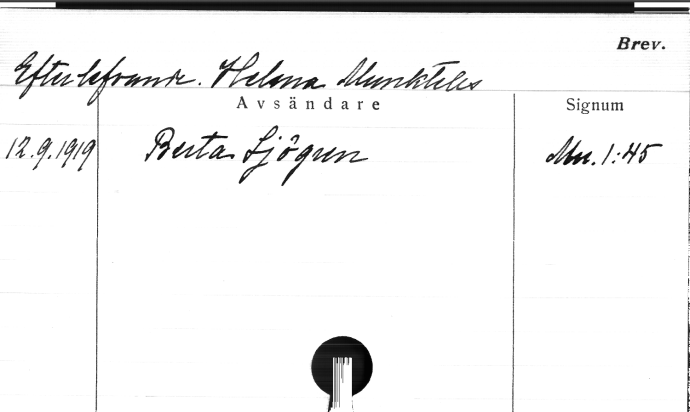 Brev.
Efterlefvande. Helena Munktells
Avsändare
Signum
12.9.1919 Berta Sjögren Mu. 1:45